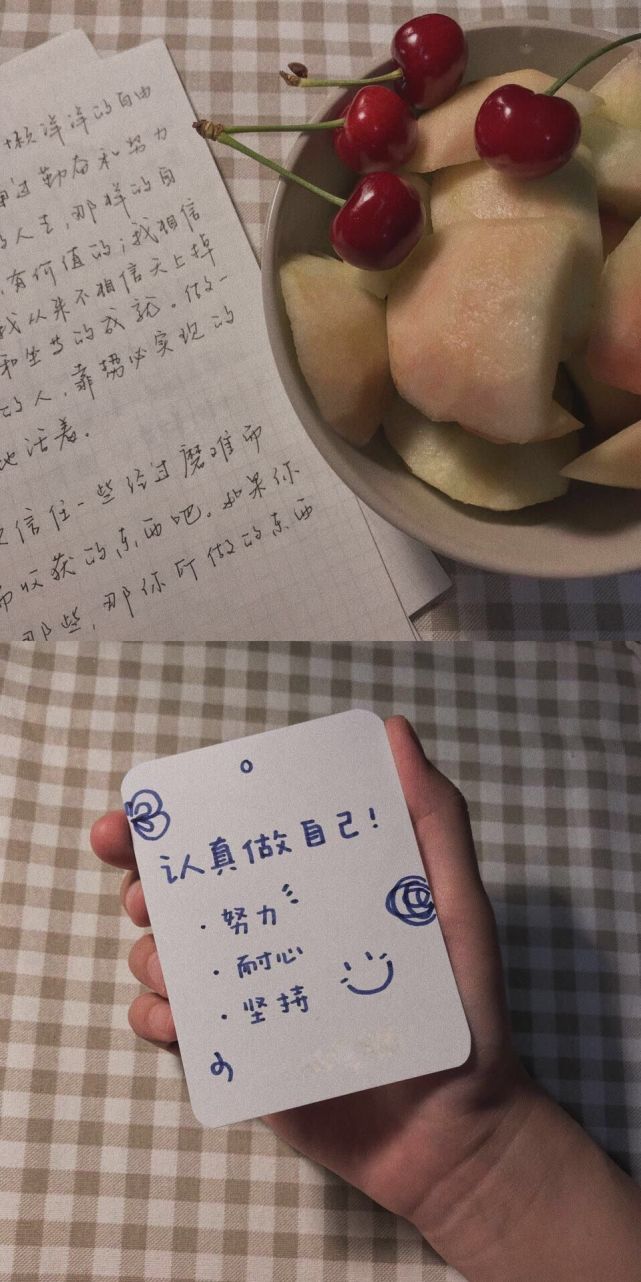 懒洋洋的自由
过勤奋和努力
的人生,那样的自
有价值的;我相信
我从来不相信天上掉
和坐等的成就。做一
的人,靠势必实现的
地活着。
信住一些经过磨难而
而收获的东西吧。如果你
那些,那你所做的东西
认真做自己!
· 努力
· 耐心
· 坚持